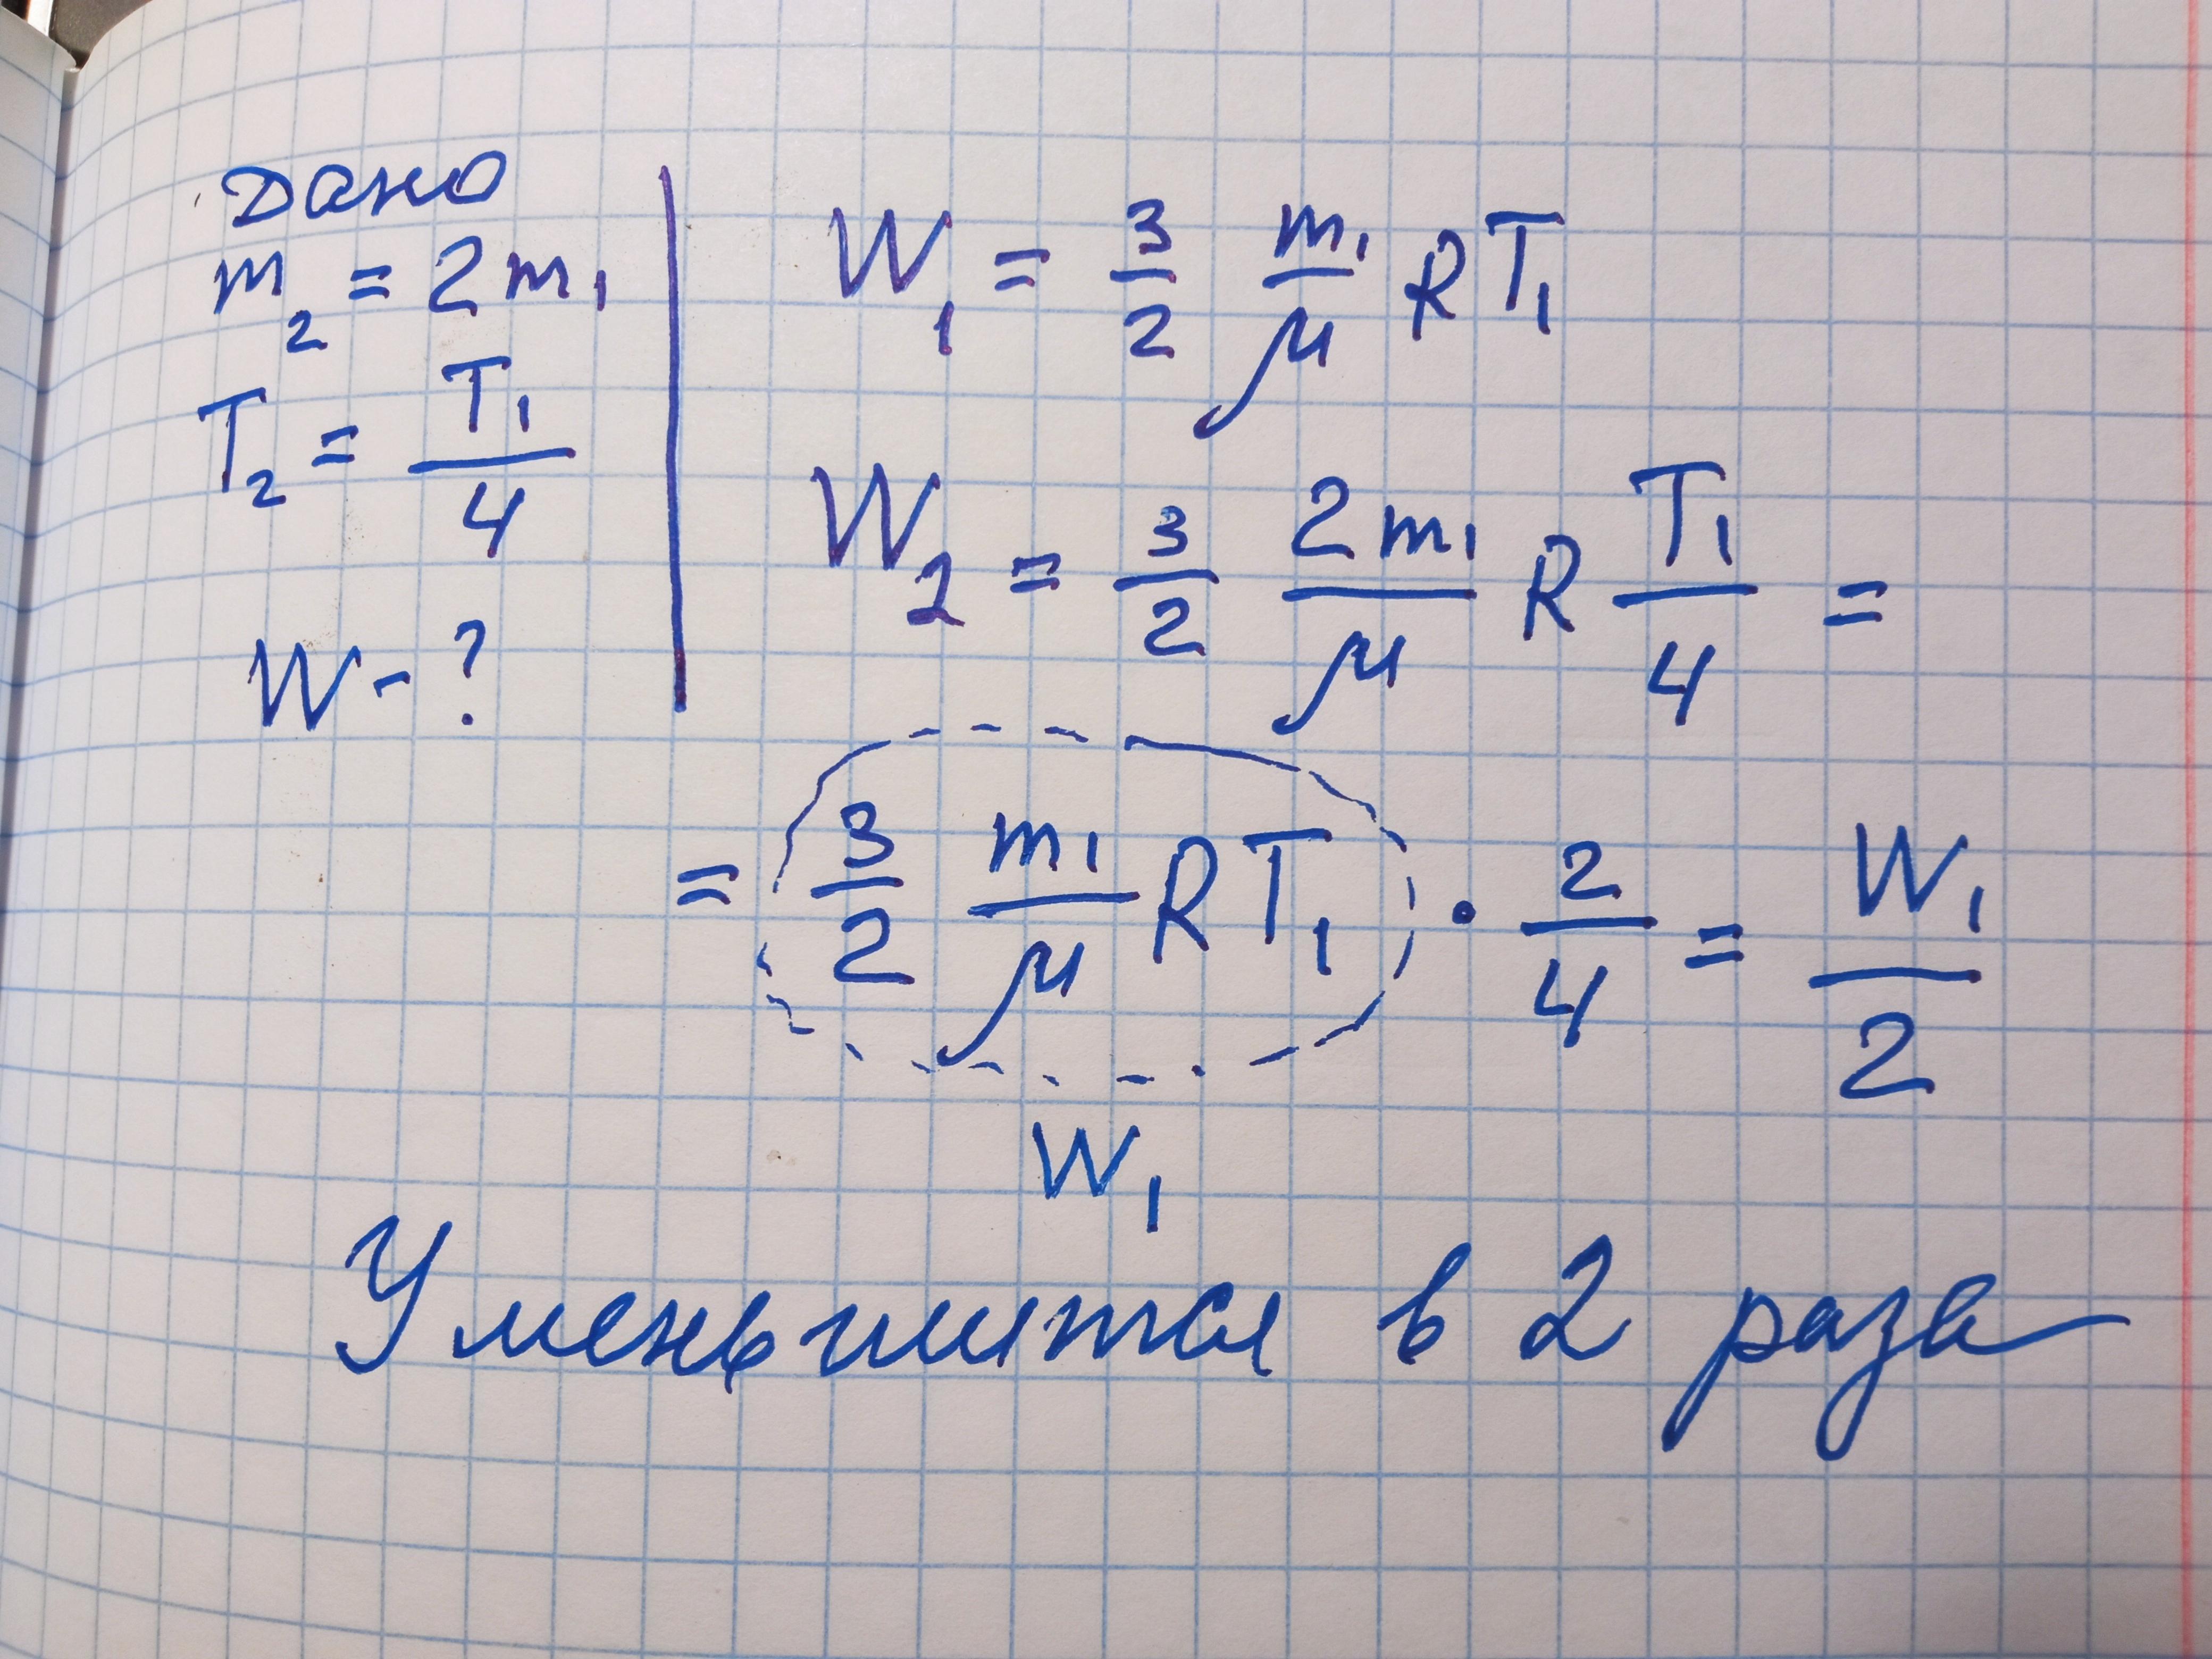 Дано
m₂ = 2m₁
T₂ = T₁/4
W - ?
W₁ = 3/2 m₁/μ RT₁
W₂ = 3/2 2m₁/μ R T₁/4 =
= 3/2 m₁/μ RT₁ · 2/4 = W₁/2
W₁
Уменьшится в 2 раза